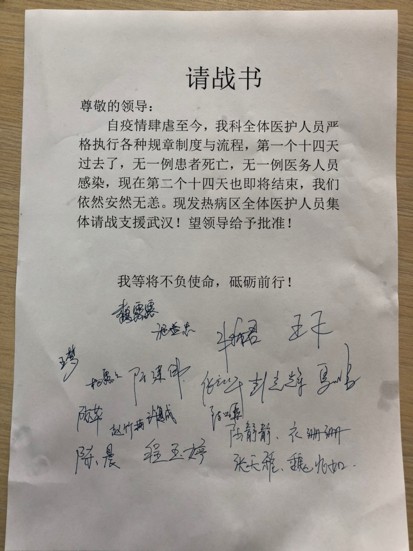 请战书
尊敬的领导:
自疫情肆虐至今,我科全体医护人员严
格执行各种规章制度与流程,第一个十四天
过去了,无一例患者死亡,无一例医务人员
感染,现在第二个十四天也即将结束,我们
依然安然无恙。现发热病区全体医护人员集
体请战支援武汉!望领导给予批准!
我等将不负使命,砥砺前行!
陈静静、衣珊珊
陈晨 程玉婷